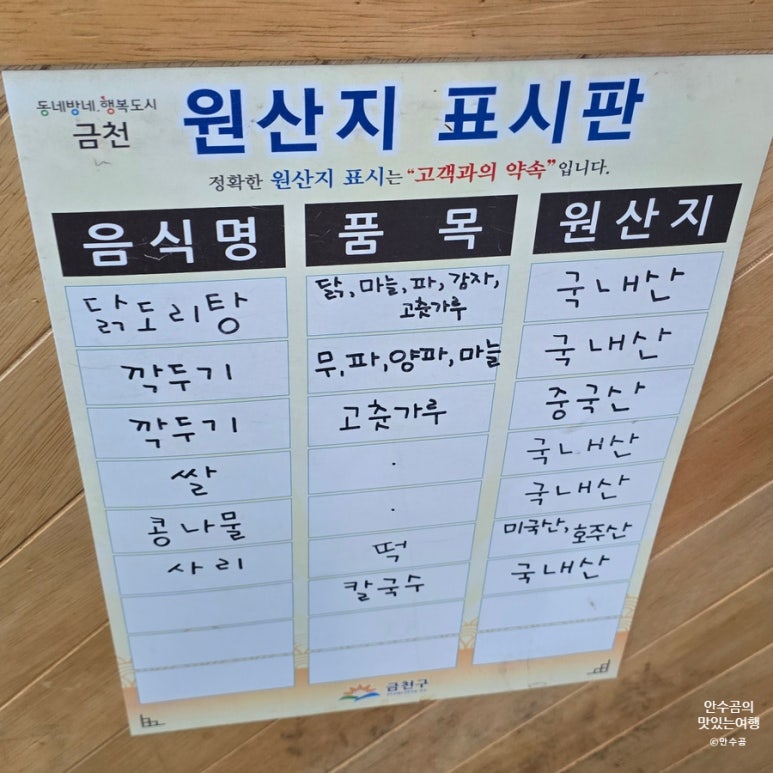 동네방네 행복도시
금천
원산지 표시판
정확한 원산지 표시는 "고객과의 약속"입니다.
음식명 품목 원산지
닭도리탕 닭, 마늘, 파, 감자, 국내산
고춧가루
깍두기 무, 파, 양파, 마늘 국내산
깍두기 고춧가루 중국산
쌀 · 국내산
콩나물 · 국내산
사리 떡 미국산, 호주산
칼국수 국내산
금천구
안수곰의
맛있는여행
©안수곰